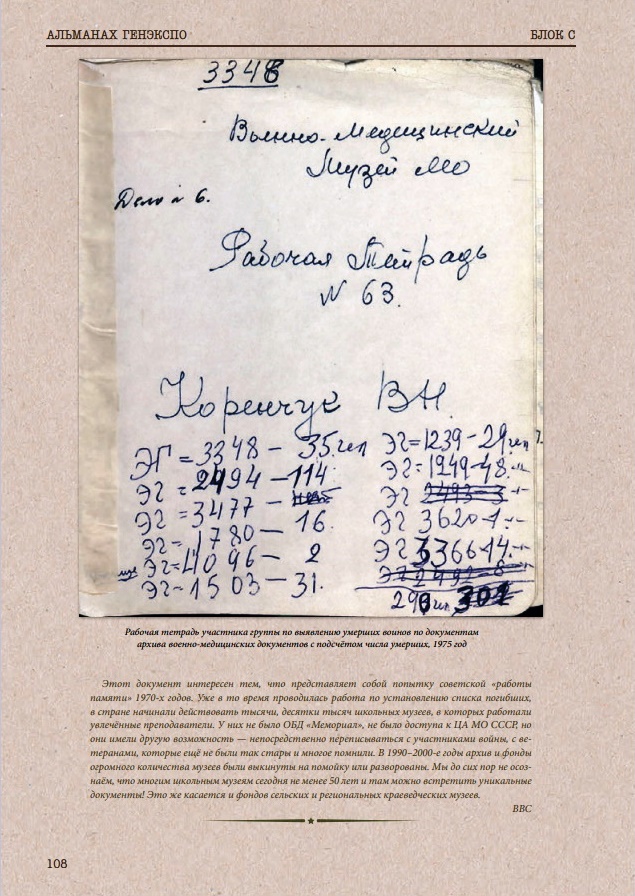 АЛЬМАНАХ ГЕНЭКСПО
БЛОК С
3348
Военно-Медицинский
Музей МО
Дело № 6.
Рабочая Тетрадь
N 63.
Коренчук ВН.
ЭГ = 3348 – 35.чел
ЭГ = 2494 – 114
ЭГ = 3477 –
ЭГ = 1780 – 16.
ЭГ = 4096 – 2
ЭГ – 1503 – 31.
ЭГ = 1239 – 29 чел
ЭГ = 1949 – 48. –"–
ЭГ 2493 – 3 –"–
ЭГ 3620 – 1 –"–
ЭГ 3366 – 14. –"–
ЭГ 2492 – 8
301
Рабочая тетрадь участника группы по выявлению умерших воинов по документам
архива военно-медицинских документов с подсчётом числа умерших, 1975 год
Этот документ интересен тем, что представляет собой попытку советской «работы
памяти» 1970-х годов. Уже в то время проводилась работа по установлению списка погибших,
в стране начинали действовать тысячи, десятки тысяч школьных музеев, в которых работали
увлечённые преподаватели. У них не было ОБД «Мемориал», не было доступа к ЦА МО СССР, но
они имели другую возможность — непосредственно переписываться с участниками войны, с ве-
теранами, которые ещё не были так стары и многое помнили. В 1990–2000-е годы архив и фонды
огромного количества музеев были выкинуты на помойку или разворованы. Мы до сих пор не осоз-
наём, что многим школьным музеям сегодня не менее 50 лет и там можно встретить уникальные
документы! Это же касается и фондов сельских и региональных краеведческих музеев.
ВВС
108